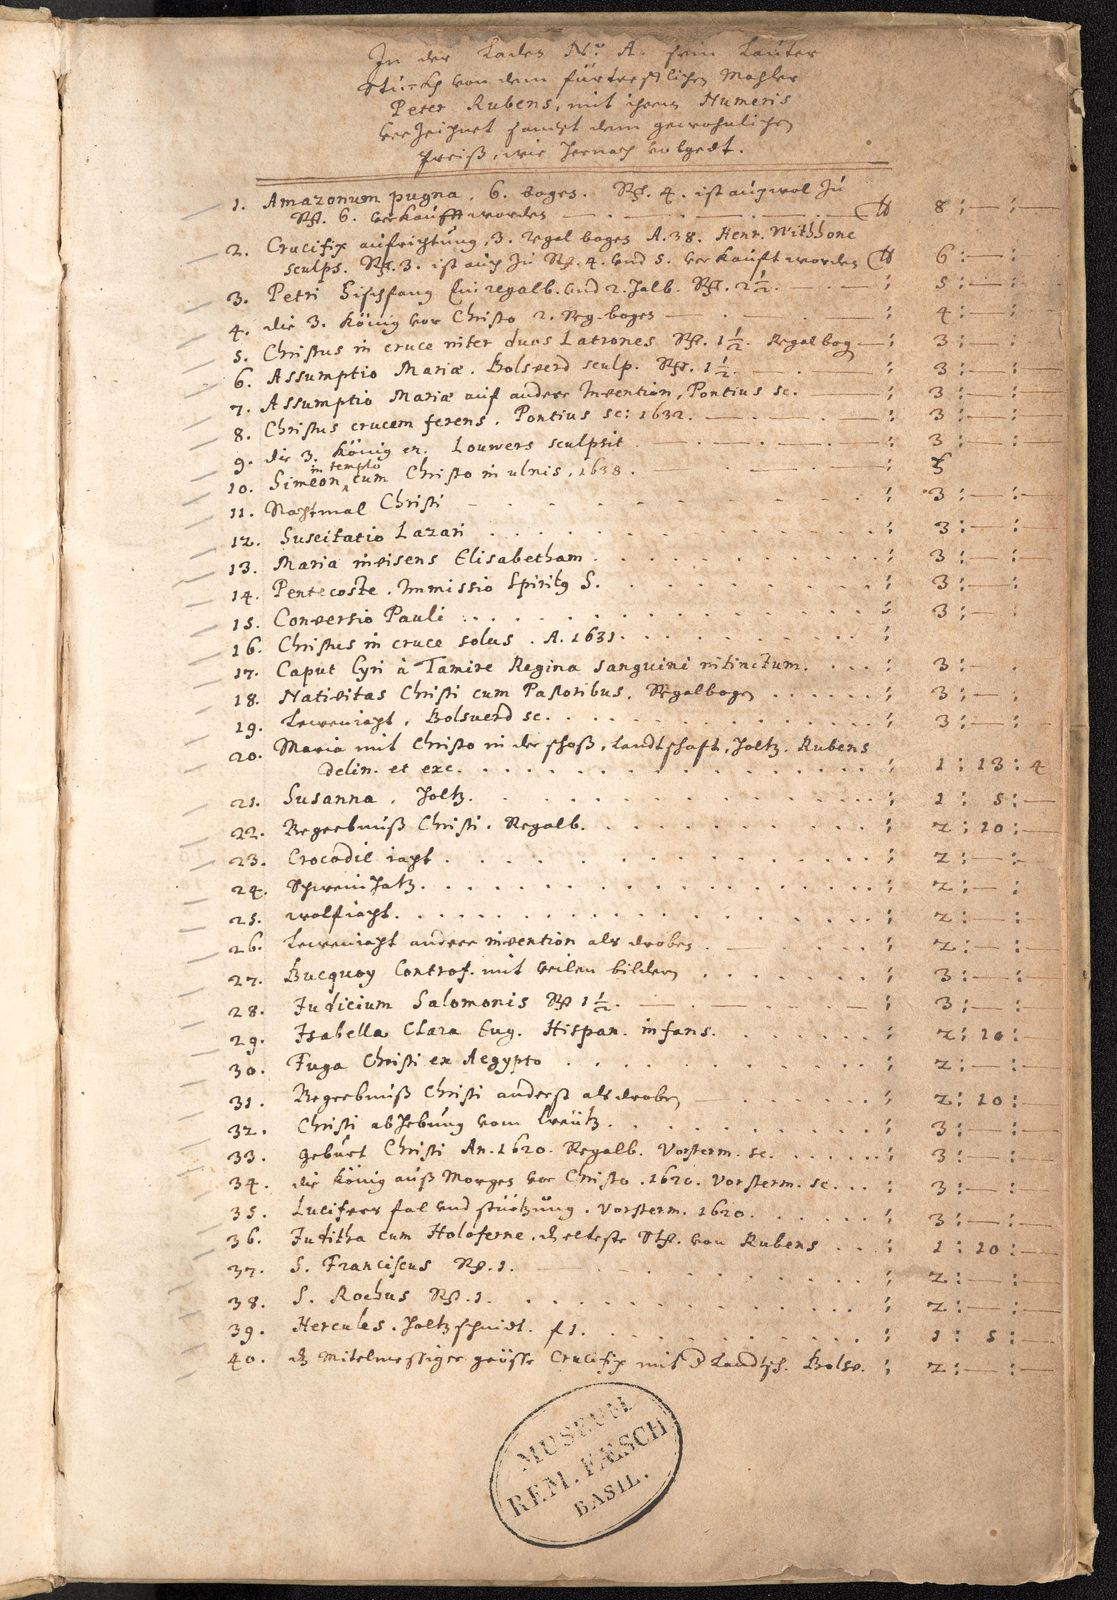 In der Laden No. A. sein lauter
Stuckh von dem fürtrefflichen Mahler
Peter Rubens, mit ihren Numeris
verzeichnet sampt dem gewohnlichen
Preiß, wie hernach volget.
1. Amazonum pugna. 6. bogen. Rth. 4. ist auch wol zu
Rth. 6. verkaufft worden — lb 8 : — :
2. Crucifix aufrichtung, 3. regal bogen A. 38. Henr. Withhone
sculps. Rth. 3. ist auch zu Rth. 4. und 5. verkauft worden lb 6 : — :
3. Petri Fischfang Ein regalb. und 2. halb. Rth. 2 1/2. — : 5 : — :
4. die 3. König vor Christo 2. Reg. bogen — : 4 : — :
5. Christus in cruce inter duos Latrones Rth. 1 1/2. Regal bog — : 3 : — :
6. Assumptio Mariæ. Bolsverd sculp. Rth. 1 1/2. — : 3 : — :
7. Assumptio Mariæ auf andere Invention, Pontius sc. — : 3 : — :
8. Christus crucem ferens. Pontius sc: 1632. — : 3 : — :
9. die 3. König er. Louwers sculpsit — : 3 : — :
in templo
10. Simeon cum Christo in ulnis, 1638. — : 3
11. Nachtmal Christi — : 3 : — :
12. Suscitatio Lazari : 3 : — :
13. Maria invisens Elisabetham : 3 : — :
14. Pentecoste. Immissio Spiritus S. : 3 : — :
15. Conversio Pauli : 3 : — :
16. Christus in cruce solus. A. 1631. :
17. Caput Cyri à Tamire Regina sanguini intinctum. : 3 : — :
18. Nativitas Christi cum Pastoribus. Regalbogen : 3 : — :
19. Lewenjacht. Bolsverd sc. : 3 : — :
20. Maria mit Christo in der schoß, Landtschaft, Holtz. Rubens
delin. et exc. : 1 : 13 : 4
21. Susanna. Holtz. : 1 : 5 : —
22. Begrebnuß Christi. Regalb. : 2 : 10 : —
23. Crocodil jacht : 2 : — :
24. Schweinhatz : 2 : — :
25. Wolfjacht : 2 : — :
26. Lewenjacht andere invention als droben : 2 : — :
27. Bucquoy Controf. mit vielen bildern : 3 : — :
28. Judicium Salomonis Rth 1 1/2. — : 3 : — :
29. Isabella Clara Eug. Hispan. infans. : 2 : 10 : —
30. Fuga Christi ex Aegypto : 2 : — :
31. Begrebnuß Christi anderst als droben — : 2 : 10 : —
32. Christi abhebung vom Creütz. : 3 : — :
33. Gebürt Christi An. 1620. Regalb. Vorsterm. sc. : 3 : — :
34. die König auß Morgen vor Christo. 1620. Vorsterm. sc. : 3 : — :
35. Lucifers fal und stürtzung. Vorsterm. 1620. : 3 : — :
36. Juditha cum Holoferne. elteste St. von Rubens : 1 : 10 : —
37. S. Franciscus Rth. 1. — : 2 : — :
38. S. Rochus Rth. 1. : 2 : — :
39. Hercules. Holtzschnidt. f 1. : 1 : 5 : —
40. Mitelmessiger grösse Crucifix mit Landtsch. Bolsv. : 2 : — :
MUSEUM
REM. FÆSCH
BASIL.